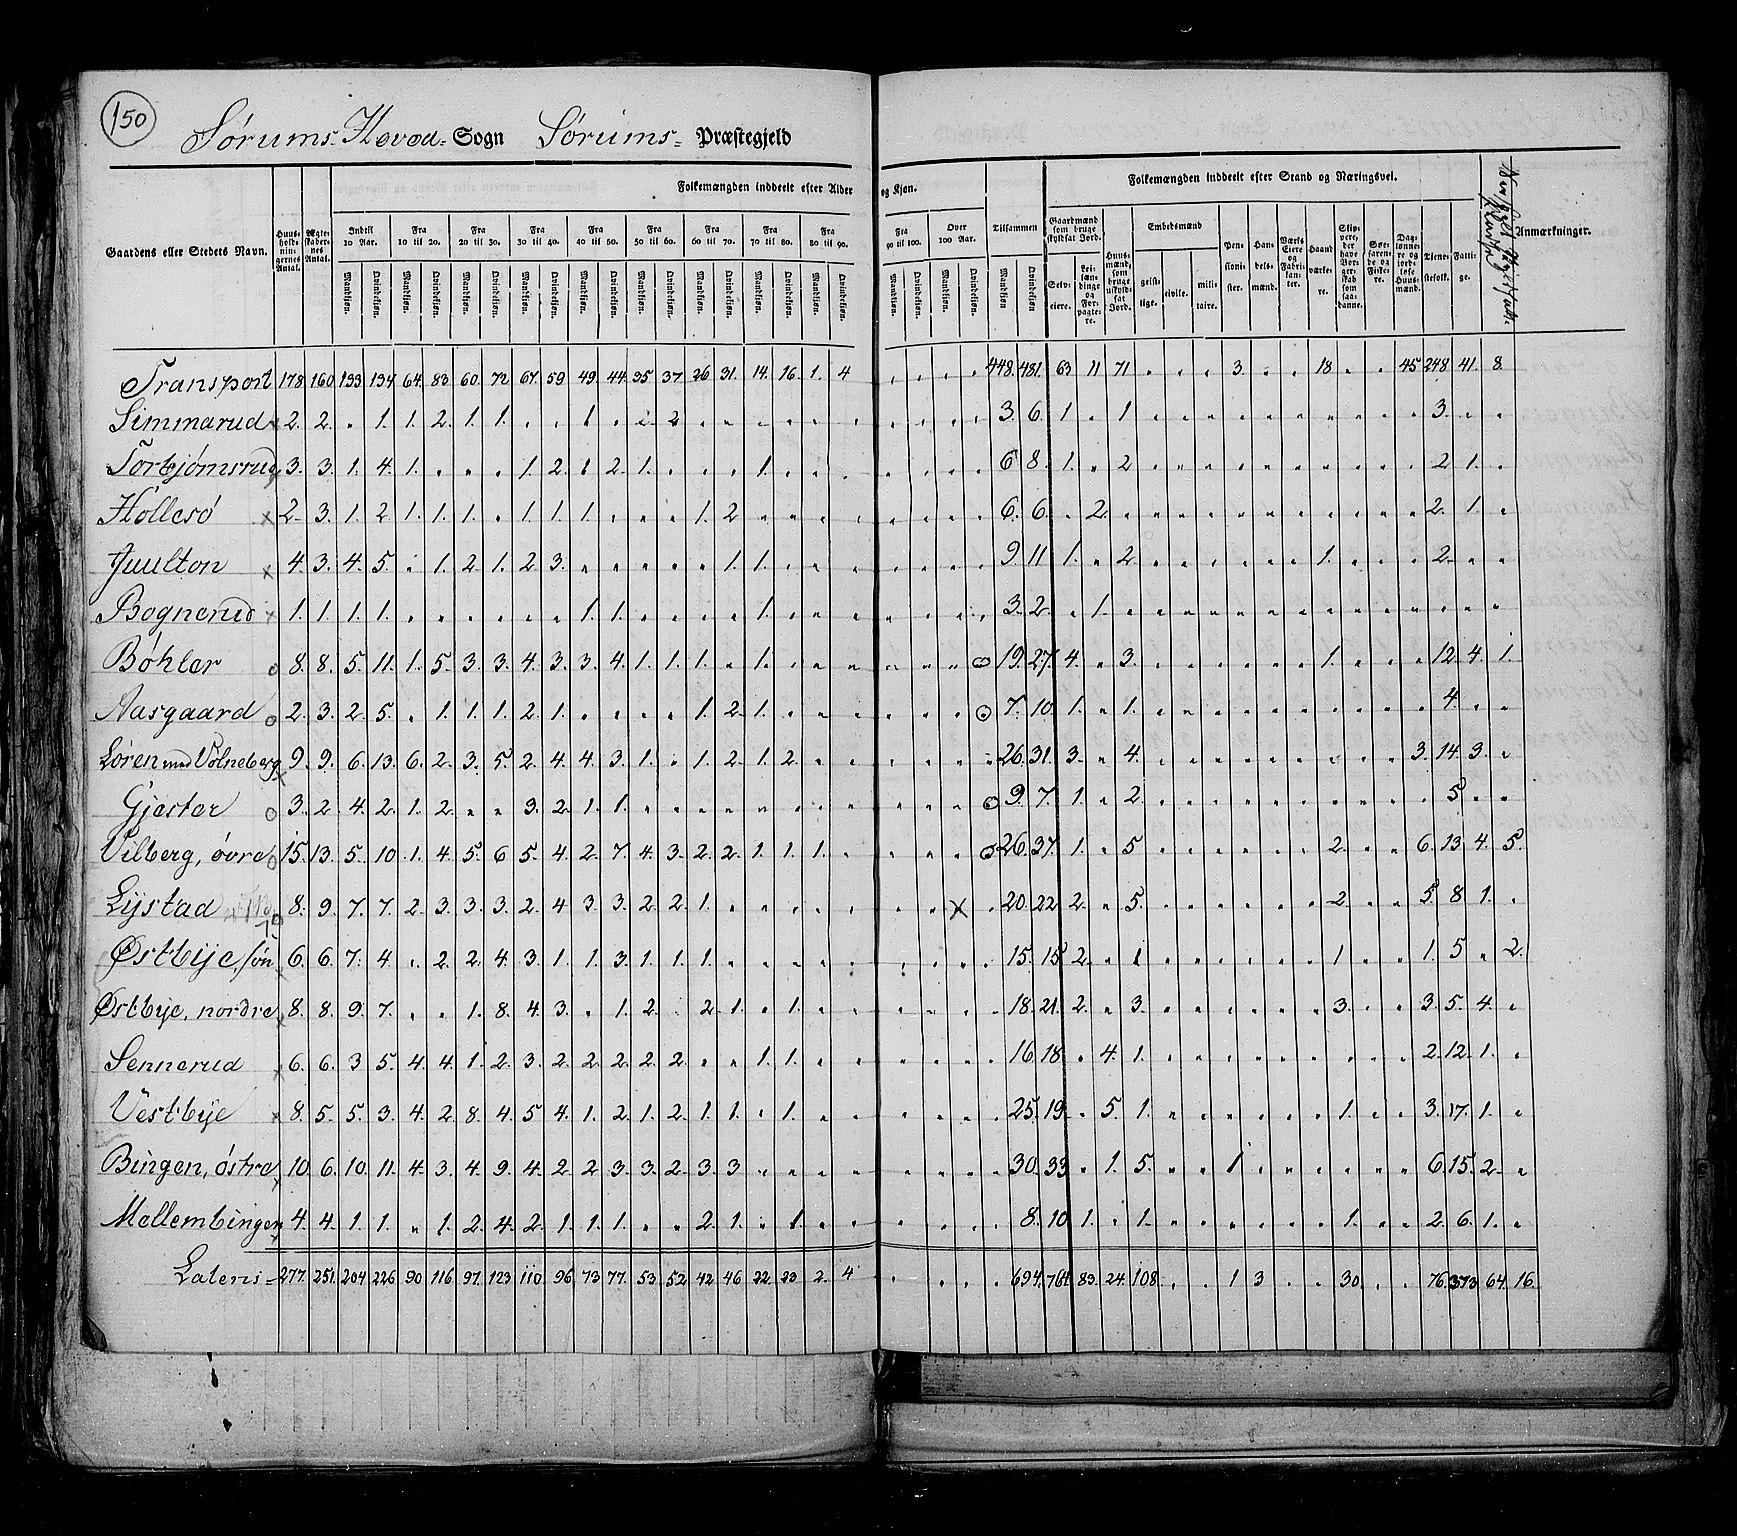 150
Sørums Hoved Sogn Sørums Præstegjeld
Folkemængden inddeelt efter Alder og Kjøn.
Folkemængden inddeelt efter Stand og Næringsvei.
Gaardens eller Stedets Navn.
Huusholdningernes Antal.
Ægteskabernes Antal.
Indtil 10 Aar. Fra 10 til 20. Fra 20 til 30. Fra 30 til 40. Fra 40 til 50. Fra 50 til 60. Fra 60 til 70. Fra 70 til 80. Fra 80 til 90. Fra 90 til 100. Over 100 Aar. Tilsammen
Mandkjøn. Qvindekjøn. Mandkjøn. Qvindekjøn. Mandkjøn. Qvindekjøn. Mandkjøn. Qvindekjøn. Mandkjøn. Qvindekjøn. Mandkjøn. Qvindekjøn. Mandkjøn. Qvindekjøn. Mandkjøn. Qvindekjøn. Mandkjøn. Qvindekjøn. Mandkjøn. Qvindekjøn. Mandkjøn. Qvindekjøn. Mandkjøn. Qvindekjøn.
Gaardmænd som bruge skyldsat Jord.
Selveiere.
Leilændinge og Forpagtere.
Huusmænd, som bruge uskyldsat Jord.
Embedsmænd
geistlige.
civile.
militaire.
Pensionister.
Handelsmænd.
Værks Eiere og Fabrikanter.
Haandværkere.
Skippere, der have Borgerskab som saadanne.
Søefarende og Fiskere.
Daglønnere og jordløse Huusmænd.
Tjenestefolk.
Fattige.
Anmærkninger.
Transport 178 160 133 134 64. 83 60. 72 67. 59 49. 44. 35 37 26 31. 14. 16. 1. 4 448. 481. 63 11 71 3. 18 45 248 41. 8.
Simmarud 2. 2. 1. 1. 2. 1. 1. 1. 2. 3. 6. 1. 1. 3.
Torbjørnsrud 3. 3. 1. 4. 1. 1. 2. 2. 1. 1. 6 8. 1. 2. 2. 1.
Hollesø 2. 3. 1. 2. 1. 1. 1. 1. 1. 1. 1. 2. 6. 6. 2. 2. 1.
Juulton 4. 3. 4. 5. 1. 2. 1. 2. 3. 1. 1. 9. 11. 1. 2. 1. 2.
Bognerud 1. 1. 1. 1. 1. 1. 1. 3. 2. 1.
Bøhler 8. 8. 5. 11. 1. 5. 3. 3. 4. 3. 3. 4. 1. 1. 1. 1. 19. 27. 4. 3. 1. 12. 4. 1.
Aasgaard 2. 3. 2. 5. 1. 1. 1. 2. 1. 1. 2. 1. 7. 10. 1. 1. 4.
Løren med Volneberg 9. 9. 6. 13. 6. 2. 3. 5. 2. 4. 4. 3. 1. 1. 2. 1. 2. 26. 31. 3. 4. 3. 14. 3.
Gjester 3. 2. 4. 2. 1. 2. 3. 2. 1. 1. 9. 7. 1. 2. 5.
Vilberg, øvre 15. 13. 5. 10. 1. 4. 5. 6. 5. 4. 2. 7. 4. 3. 2. 2. 1. 1. 1. 26. 37. 1. 5. 2. 6. 13. 4. 5.
Lystad 8. 9. 7. 7. 2. 3. 3. 3. 2. 4. 3. 3. 2. 2. 1. 20. 22. 2. 5. 2. 5. 8. 1.
Østbye, søn 6. 6. 7. 4. 2. 2. 4. 3. 1. 1. 3. 1. 1. 1. 15. 15. 2. 1. 1. 1. 5. 2.
Østbye, nordre 8. 8. 9. 7. 1. 8. 4. 3. 1. 2. 2. 1. 1. 18. 21. 2. 3. 3. 3. 5. 4.
Sennerud 6. 6. 3 5. 4. 4. 1. 2. 3. 2. 2. 2. 2. 2. 1. 1. 16. 18. 4. 1. 2. 12. 1.
Vestbye 8. 5. 5. 3. 4. 2. 8. 4. 5. 4. 1. 2. 1. 2. 1. 1. 1. 25. 19. 5. 1. 1. 3. 17. 1.
Bingen, østre 10. 6. 10. 11. 4. 3. 4. 9. 4. 2. 2. 3. 3. 2. 3. 3. 30. 33. 1. 5. 1 6. 15. 2.
Mellembingen 4. 4. 1. 1. 1. 2. 4. 2. 1. 1. 1. 2. 1. 1. 8. 10. 1. 1. 1. 2. 6. 1.
Lateris 277. 251. 204 226 90 116 97. 123 110. 96 73 77. 53. 52. 42 46 22. 23 2. 4 694. 764. 83. 24. 108. 1 3 30. 76. 373 64. 16.